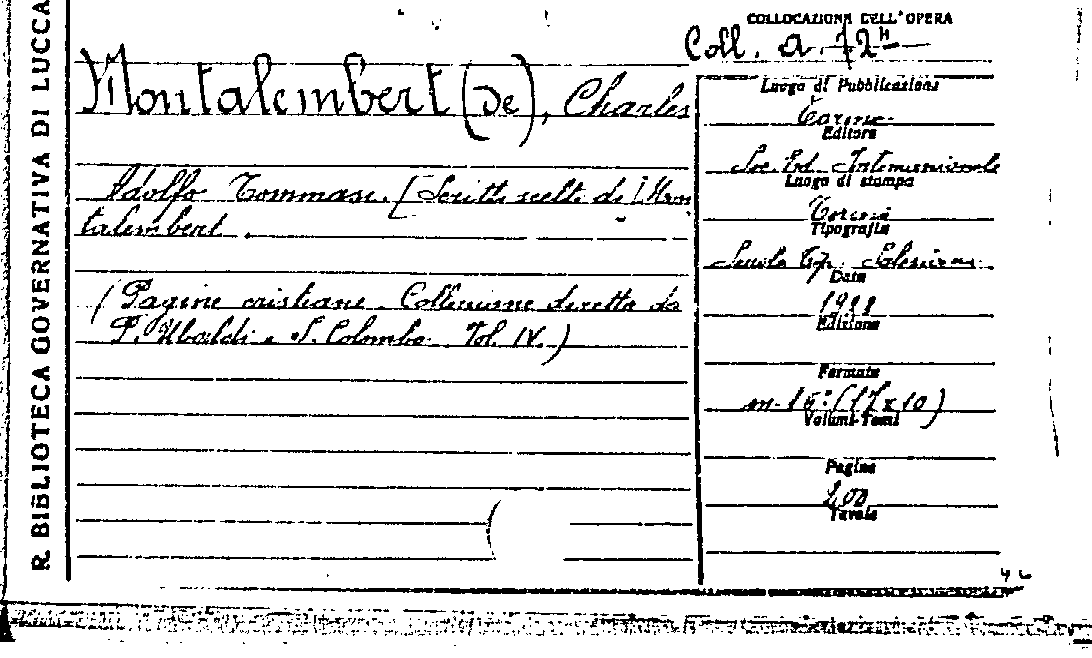 R. BIBLIOTECA GOVERNATIVA DI LUCCA
COLLOCAZIONE DELL'OPERA
Coll. a. 72
Montalembert (De), Charles
Adolfo Tommasi. [Scritti scelti di] Mon
talembert.
(Pagine cristiane. Collezione diretta da
P. Ubaldi e S. Colombo. Vol. IV.)
Luogo di Pubblicazione
Torino
Editore
Soc. Ed. Internazionale
Luogo di stampa
Torino
Tipografia
Scuola Tip. Salesiana
Data
Edizione
Formato
in-16° (17x10)
Volumi-Tomi
Pagine
200
Tavole